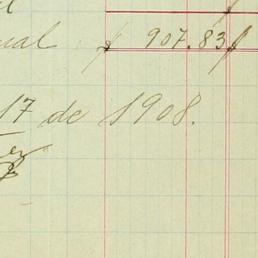 ual $ 907.83 $
17 de 1908.